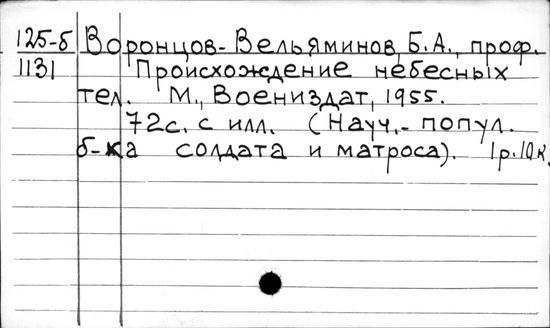 125-б Воронцов-Вельяминов, Б.А., проф.
1131 Происхождение небесных
тел. М., Воениздат, 1955.
72с. с илл. (Науч.-попул.
б-ка солдата и матроса). 1р.10к.